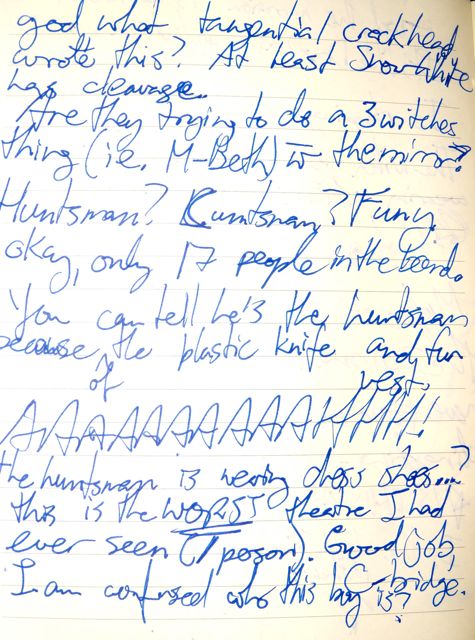 god what tangential crackhead
wrote this? At least Snow White
has cleavage.
Are they trying to do a 3 witches
thing (i.e. M-Beth) w the mirror?
Huntsman? Cuntsman? Funy.
okay, only 17 people in the board.
You can tell he's the huntsman
because the plastic knife and fur
of vest.
AAAAAAAAAAAHHHH!
the huntsman is wearing dress shoes...?
this is the WORST theatre I had
ever seen (7 person). Good job,
C-bridge.
I am confused who this boy is?